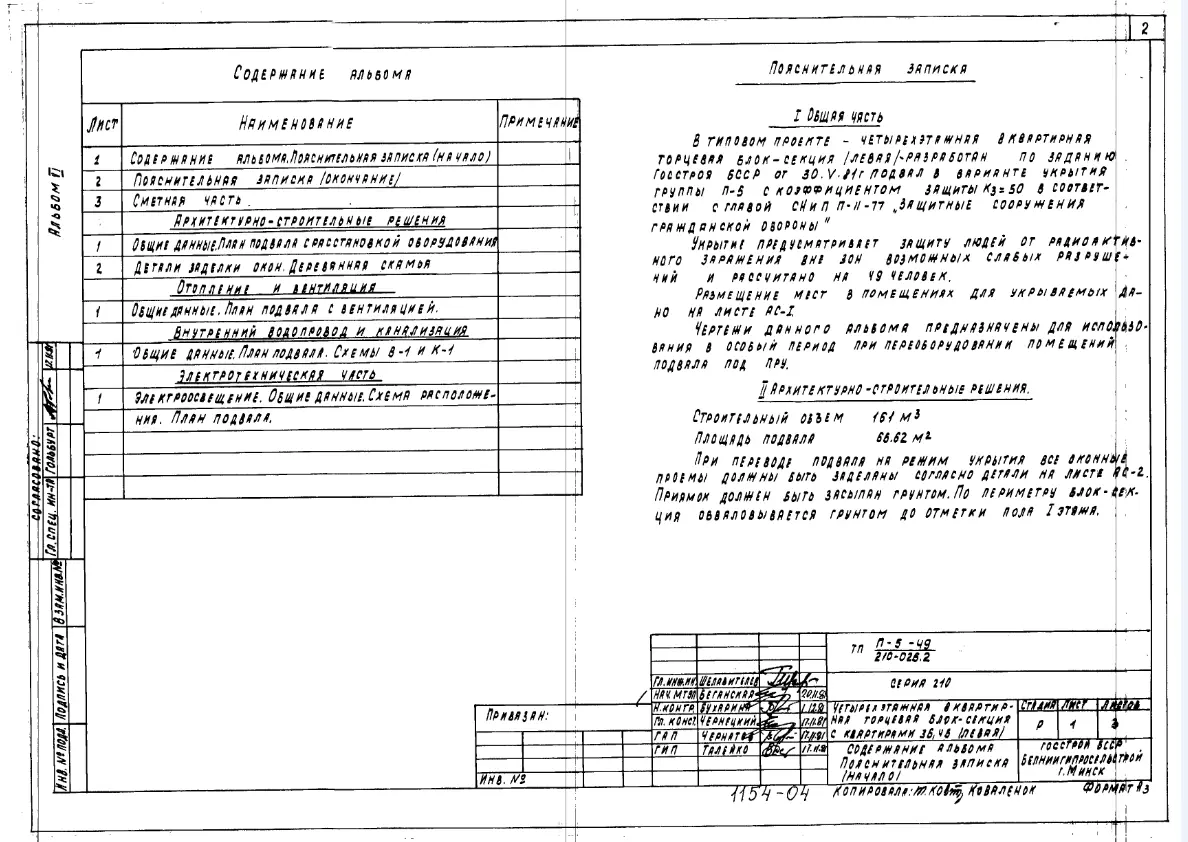 2
Альбом VI
Содержание альбома
Лист Наименование Примечание
1 Содержание альбома. Пояснительная записка (начало)
2 Пояснительная записка /окончание/
3 Сметная часть.
Архитектурно-строительные решения
1 Общие данные. План подвала с расстановкой оборудования
2 Детали заделки окон. Деревянная скамья
Отопление и вентиляция
1 Общие данные. План подвала с вентиляцией.
Внутренний водопровод и канализация
1 Общие данные. План подвала. Схемы В-1 и К-1
Электротехническая часть
1 Электроосвещение. Общие данные. Схема расположе-
ния. План подвала.
Пояснительная записка
I Общая часть
В типовом проекте - четырехэтажная 8 квартирная
торцевая блок-секция /левая/-разработан по заданию
Госстроя БССР от 30.V.81г подвал в варианте укрытия
группы П-5 с коэффициентом защиты Кз=50 в соответ-
ствии с главой СНиП П-11-77 „Защитные сооружения
гражданской обороны"
Укрытие предусматривает защиту людей от радиоактив-
ного заражения вне зон возможных слабых разруше-
ний и рассчитано на 49 человек.
Размещение мест в помещениях для укрываемых да-
но на листе АС-1.
Чертежи данного альбома предназначены для использо-
вания в особый период при переоборудовании помещений
подвала под ПРУ.
II Архитектурно-строительные решения.
Строительный объем 161 м3
Площадь подвала 66.62 м2
При переводе подвала на режим укрытия все оконные
проемы должны быть заделаны согласно детали на листе АС-2.
Приямок должен быть засыпан грунтом. По периметру блок-сек-
ция обваловывается грунтом до отметки пола I этажа.
Согласовано:
Гл. спец. ин-та Гольбурт
Взам. инв. №
Подпись и дата
Инв. № подл.
Привязан:
Инв. №
ТП П-5-49
210-026.2
Серия 210
Гл. инж. ин. Шелавителев
Нач. МТЭП Беганская 20.11.81
Н. контр. Бухарина 1.12.81
Гл. конст. Чернецкий 17.11.81
ГАП Чернатов 17.11.81
ГИП Талейко 17.11.81
Четырехэтажная 8 квартир-
ная торцевая блок-секция
с квартирами 3Б, 4Б /левая/
Стадия Лист Листов
Р 1 3
Содержание альбома
Пояснительная записка
/начало/
Госстрой БССР
Белниигипросельстрой
г. Минск
1154-04
Копировала: Коваленок
Формат А3